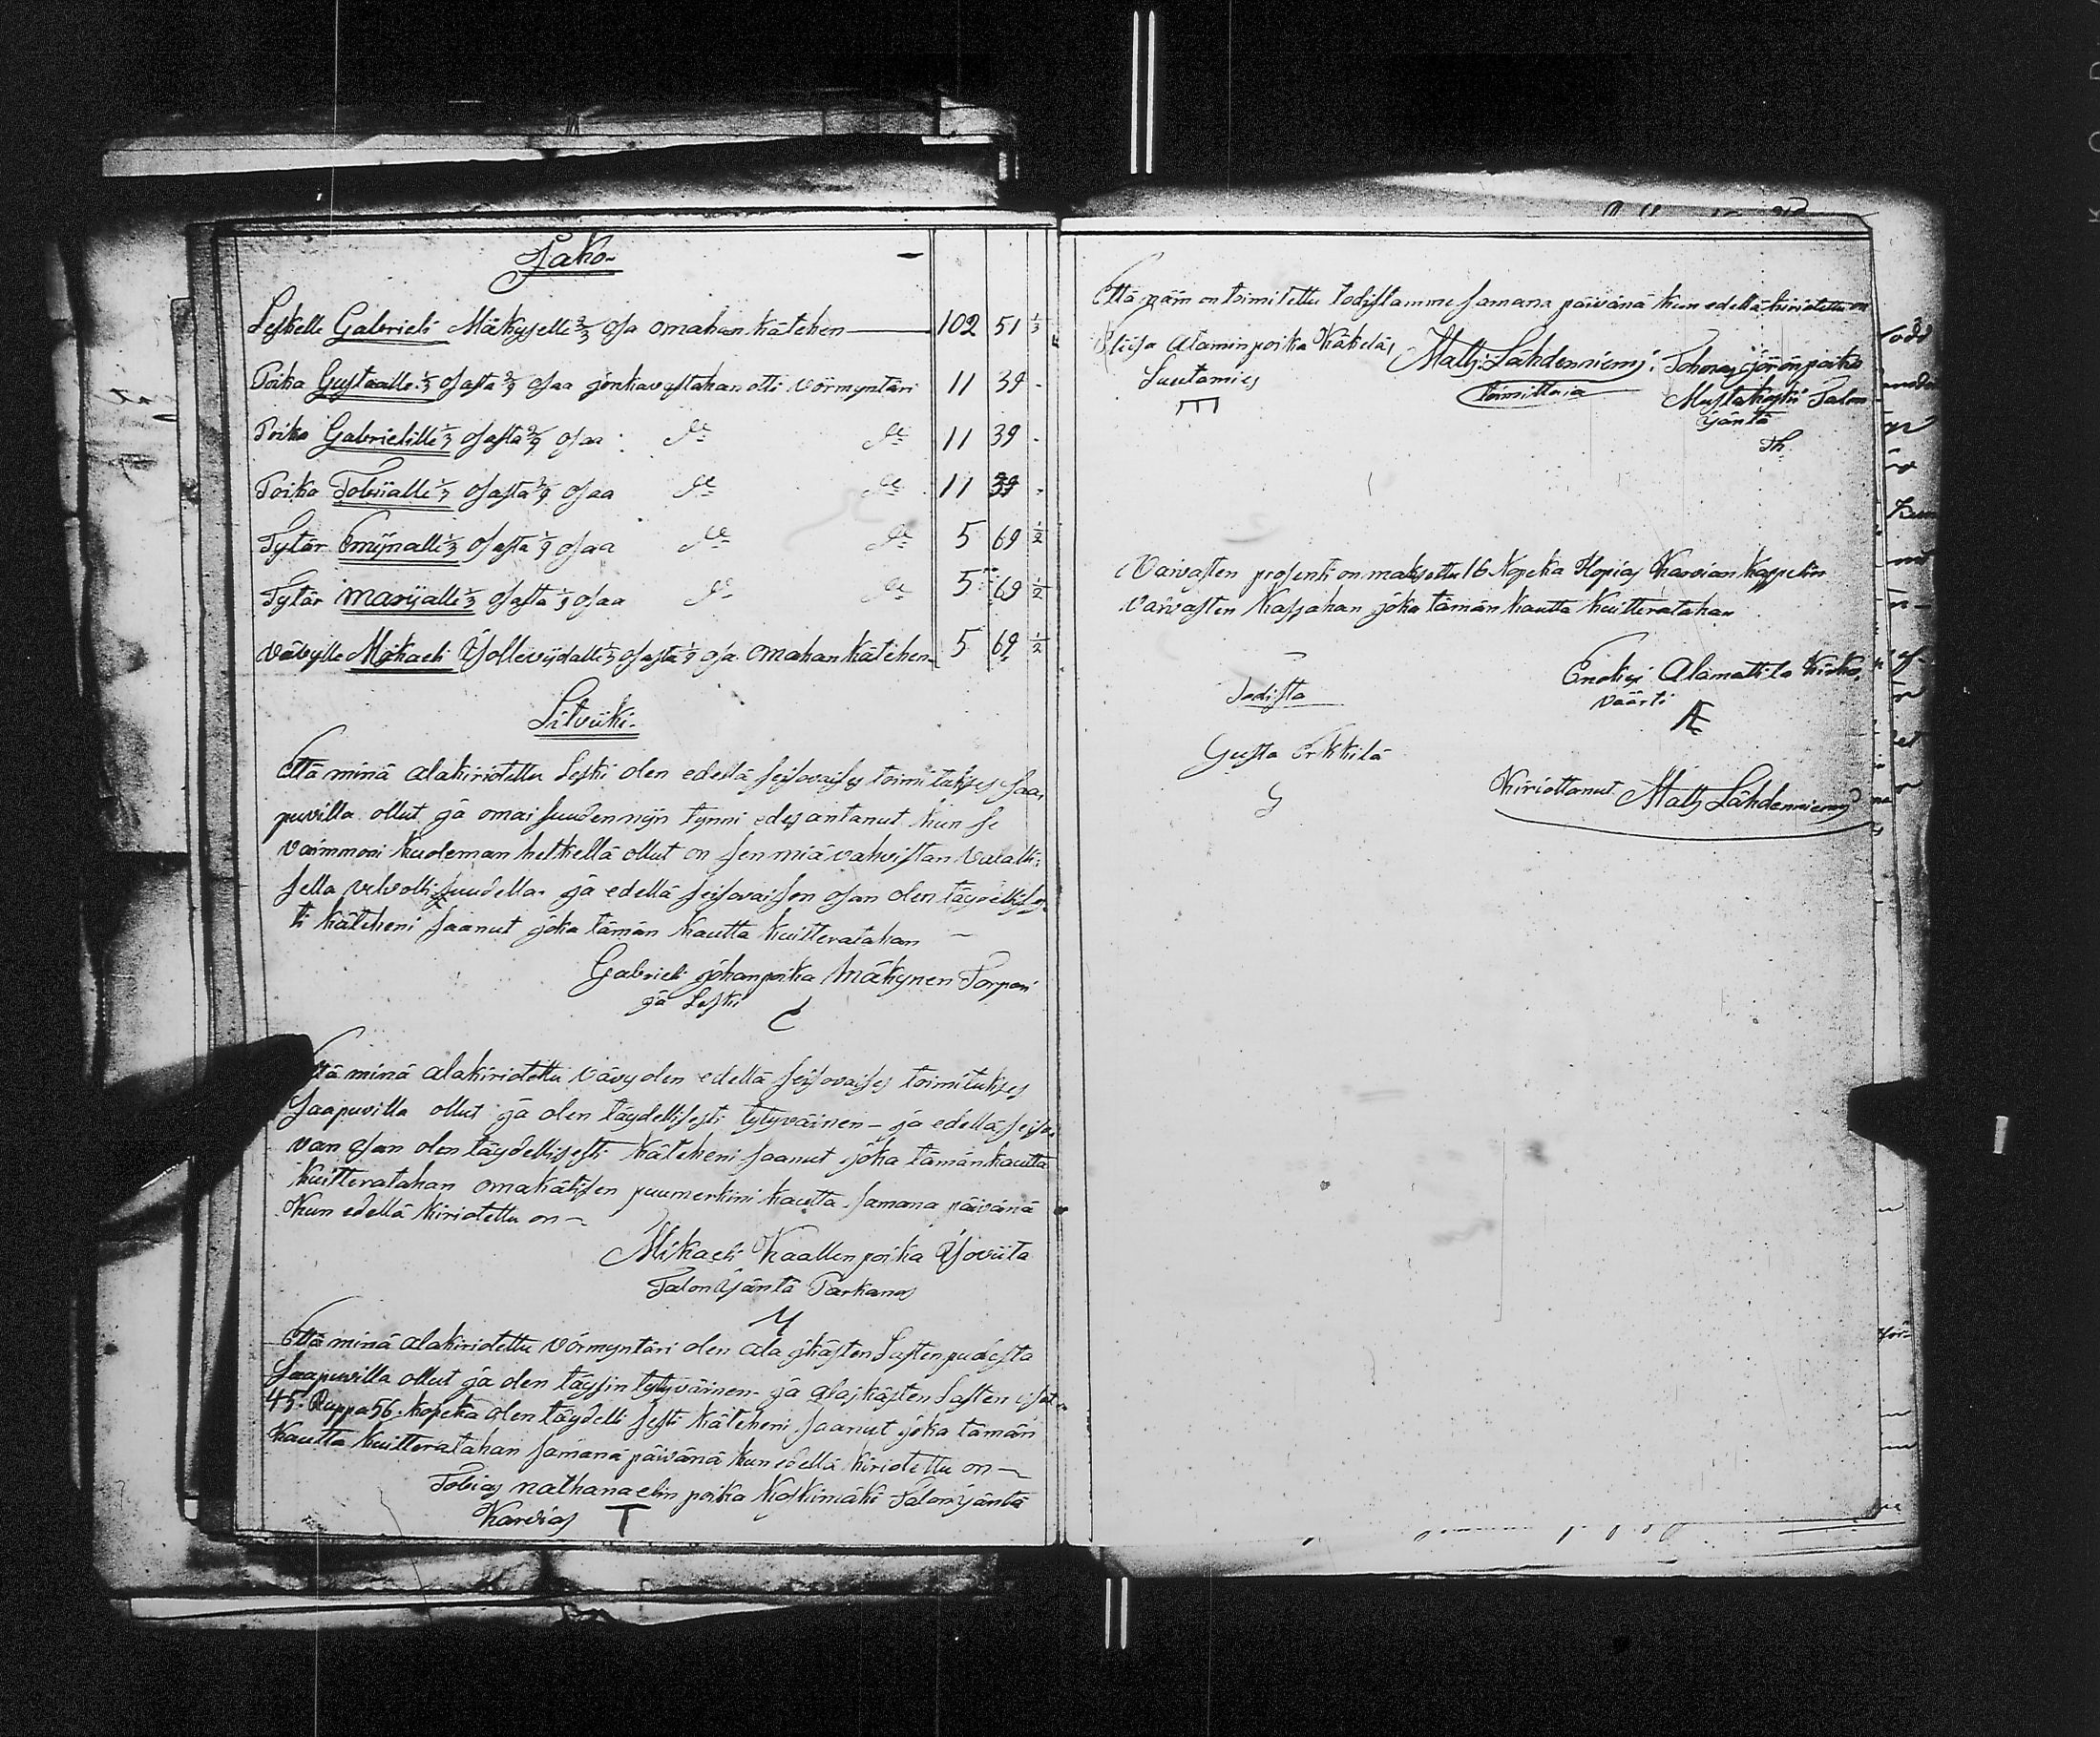 Jako-
Leskelle Gabrieli Mäkyselle 2/3 osa omahan kätehen 102 51 1/3
Poika Gustaalle 1/3 osasta 2/9 osaa jonkavastahan otti vörmyntäri 11 39 -
Poika Gabrielille 1/3 osasta 2/9 osaa do do 11 39 -
Poika Tobiialle 1/3 osasta 2/9 osaa do do 11 39 -
Tytär Emiinalle 1/3 osasta 1/9 osaa do do 5 69 1/2
Tytär Mariialle 1/3 osasta 1/9 osaa do do 5 69 1/2
Vävylle Mikaeli 1/3 osasta 1/9 osa omahan kätehen 5 69 1/2
Litviiki-
Että minä alakiriotettu Leski olen edellä seisovaises toimitukses saa,
puvilla ollut ja omaisuuden niin tynni edesantanut kun se
vaimmoni kuoleman hetkellä ollut on sen miä vahvistan valalli:
sella velvollisuudella. ja edellä seisovaissen osan olen täydellises,
ti käteheni saanut joka tämän kautta kuitteratahan
Gabrieli johanpoika Mäkynen Torpari
ja Leski
Että minä alakiriotettu vävy olen edellä seisovaises toimitukses
saapuvilla ollut ja olen täydellisesti tytyväinen - ja edellä seiso,
van osan olen täydellisesti käteheni saanut joka tämän kautta
kuitteratahan omakätisen puumerkini kautta samana päivänä
kun edellä kiriotettu on -
Mikaeli Kaallen poika Yloviita
Talon Isäntä Parkanos
Että minä alakiriotettu vörmyntäri olen ala ikästen Lasten puolesta
saapuvilla ollut ja olen täysin tytyväinen - ja alaikästen Lasten osat
45. Ruppa 56. kopeka olen täydellisesti käteheni saanut joka tämän
kautta kuitteratahan samana päivänä kun edellä kiriotettu on -
Tobias nathanaelin poika Koskimäki Talon isäntä
Karvias T
Että näin on toimitettu todistamme samana päivänä kun edellä kiriotettu on
Eliisa Ataminpoika Käkelä,
Luutamies
Matts: Lähdenniemi:
toimittaia
Johonas jörönpoika
Mustakoski Talon
isäntä
Vaivasten prosenti on maksettu 16 kopeka Hopias Karvian kappelin
Vaivasten kassahan joka tämän kautta kuitteratahan
Todista
Enokki Alamattila kirko,
väärti
Gusta Erkkilä
G
Kiriottanut Matts Lähdenniemi